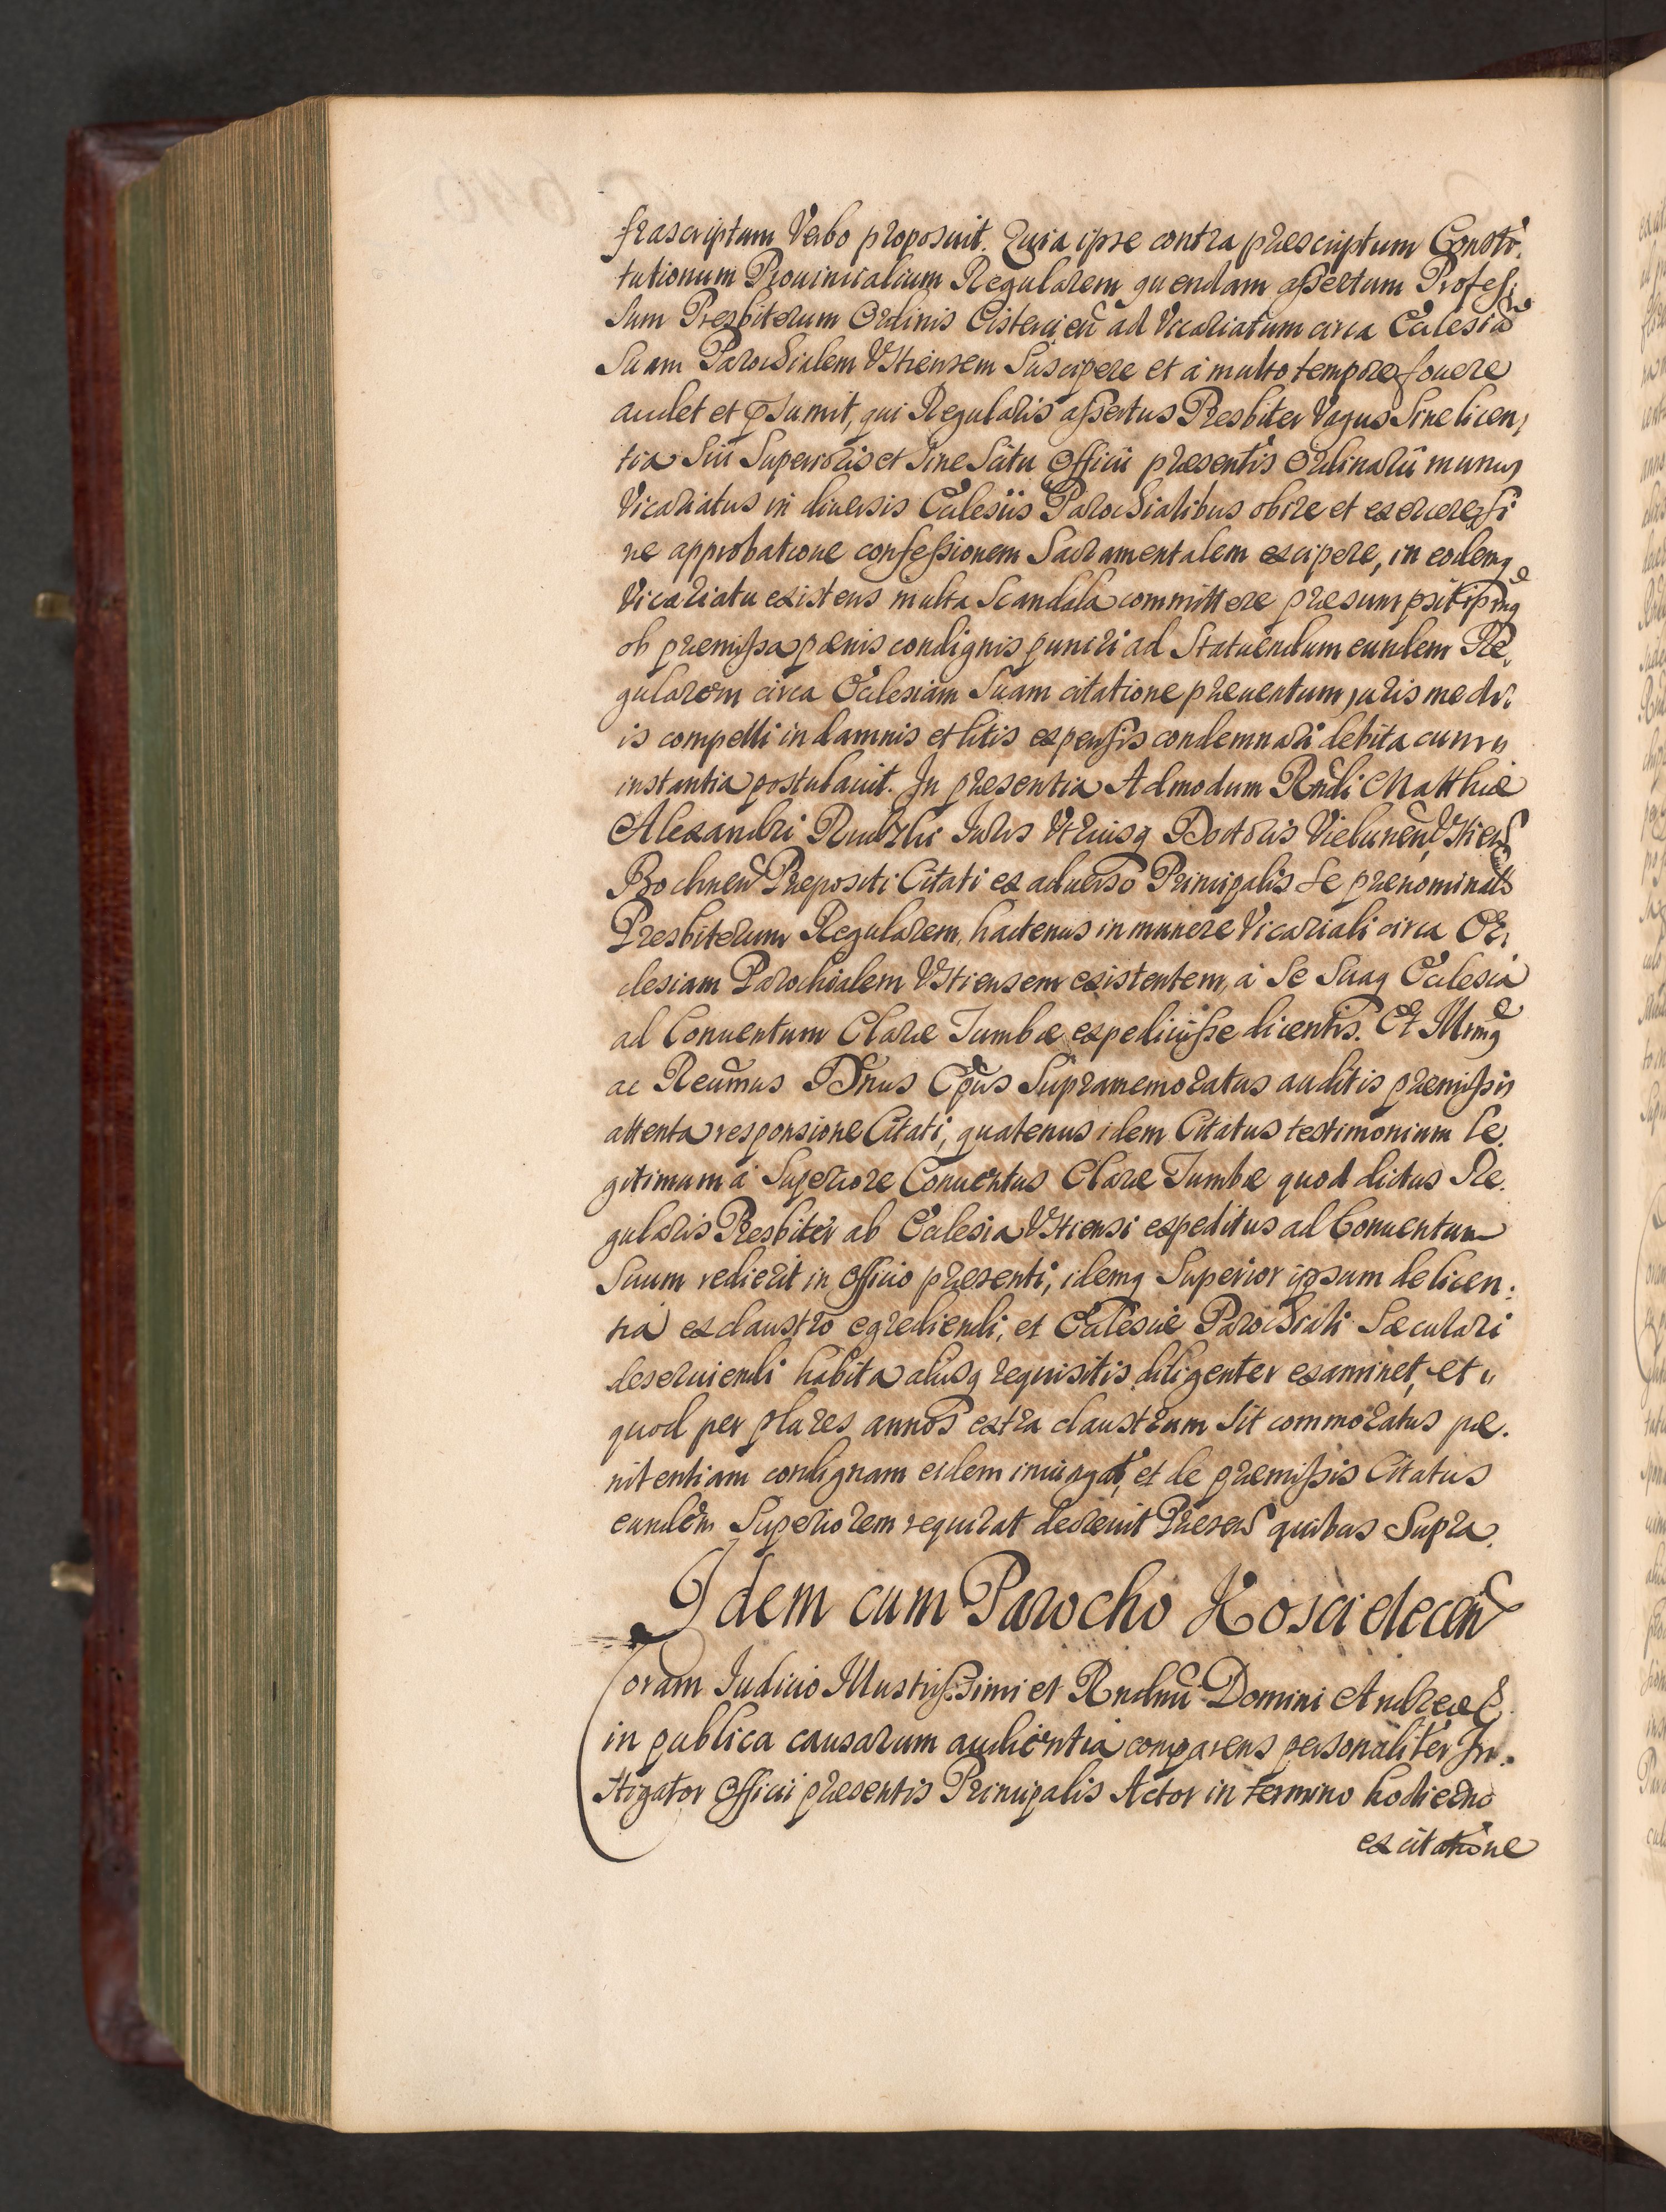 frascriptum Verbo proposuit. Quia ipse contra præscriptum Consti:
tutionum Prouincialium Regularem quendam assertum Profes:
sum Presbiterum Ordinis Cistercieñ ad Vicariatum circa Ecclesiã
Suam Parochialem Vstiensem Suscipere et à multo tempore fouere
audet et p̃sumit, qui Regularis assertus Presbiter Vagus Sine licen:
tia Sui Superioris et Sine Scitu Officii præsentis Ordinarii munus
Vicariatus in diuersis Ecclesiis Parochialibus obire et exercere, si
ne approbatione confessionem Sacramentalem excipere, in eodemq
Vicariatu existens multa Scandala committere præsumpsit ipsũq
ob præmissa pœnis condignis puniri ad Statuendum eundem Re,
gularem circa Ecclesiam Suam citatione præuentum juris medi:
is compelli in damnis et litis expensis condemnari debita cum
instantia postulauit. In præsentia Admodum Rñdi Matthiæ
Alexandri Juris Vtriusq Doctoris Vielunẽn, Vstień
Bochneñ Præpositi Citati ex aduerso Principalis se prænominatũ
Presbiterum Regularem, hactenus in munere Vicariali circa Ec,
clesiam Parochialem Vstiensem existentem, à Se Suaq Ecclesiã
ad Conuentum Claræ Tumbæ expediuisse dicentis. Et Illmũs
ac Reũmus Dñus Ep̃us Supramemoratus auditis præmissis
attenta responsione Citati, quatenus idem Citatus testimonium le.
gitimum à Superiore Conuentus Claræ Tumbæ quod dictus Re.
gularis Presbiter ab Ecclesia Vstiensi expeditus ad Conuentum
Suum redierit in Officio præsenti, idemq Superior ipsum de licen:
tiã ex claustro egrediendi, et Ecclesiæ Parochiali Sæculari
deseruiendi habita aliisq requisitis diligenter examinet, et
quod per plures annos extra claustrum Sit commoratus pæ.
nitentiam condignam eidem iniungat, et de præmissis Citatus
eundem Superiorem requirat decreuit Præseñ quibus Supra.
Idem cum Parocho Koscieleceñ
Coram Judicio Illustrissimi et Rndmi Domini Andreæ E
in publica causarum audientia comparens personaliter In.
stigator Officii præsentis Principalis Actor in termino hodierno
ex citatione